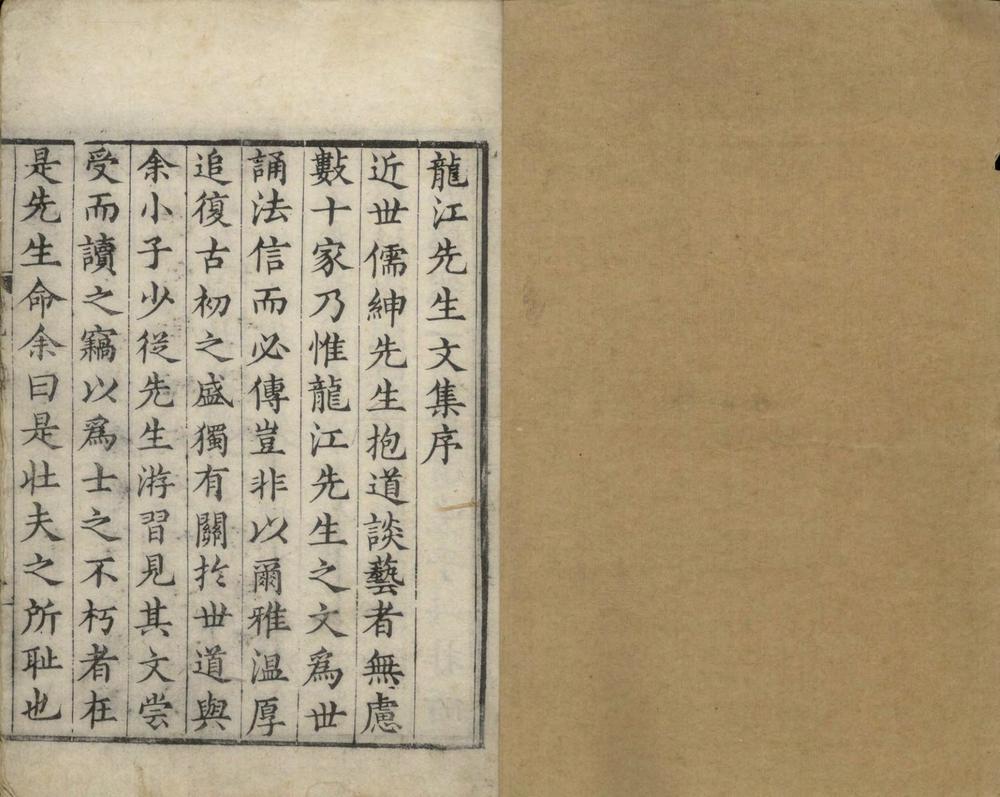 龍江先生文集序
近世儒紳先生抱道談藝者無慮
數十家乃惟龍江先生之文爲世
誦法信而必傳豈非以爾雅溫厚
追復古初之盛獨有關於世道與
余小子少從先生游習見其文尝
受而讀之竊以爲士之不朽者在
是先生命余曰是壯夫之所耻也